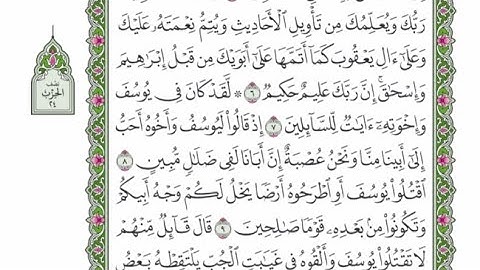 رَبُّكَ وَيُعَلِّمُكَ مِن تَأْوِيلِ ٱلْأَحَادِيثِ وَيُتِمُّ نِعْمَتَهُۥ عَلَيْكَ
وَعَلَىٰٓ ءَالِ يَعْقُوبَ كَمَآ أَتَمَّهَا عَلَىٰٓ أَبَوَيْكَ مِن قَبْلُ إِبْرَٰهِيمَ
وَإِسْحَٰقَۚ إِنَّ رَبَّكَ عَلِيمٌ حَكِيمٌ ٦ ۞ لَّقَدْ كَانَ فِى يُوسُفَ
وَإِخْوَتِهِۦٓ ءَايَٰتٌ لِّلسَّآئِلِينَ ٧ إِذْ قَالُوا۟ لَيُوسُفُ وَأَخُوهُ أَحَبُّ
إِلَىٰٓ أَبِينَا مِنَّا وَنَحْنُ عُصْبَةٌ إِنَّ أَبَانَا لَفِى ضَلَٰلٍ مُّبِينٍ ٨
ٱقْتُلُوا۟ يُوسُفَ أَوِ ٱطْرَحُوهُ أَرْضًا يَخْلُ لَكُمْ وَجْهُ أَبِيكُمْ
وَتَكُونُوا۟ مِنۢ بَعْدِهِۦ قَوْمًا صَٰلِحِينَ ٩ قَالَ قَآئِلٌ مِّنْهُمْ
لَا تَقْتُلُوا۟ يُوسُفَ وَأَلْقُوهُ فِى غَيَٰبَتِ ٱلْجُبِّ يَلْتَقِطْهُ بَعْضُ
نصف
الحزب
٢٤